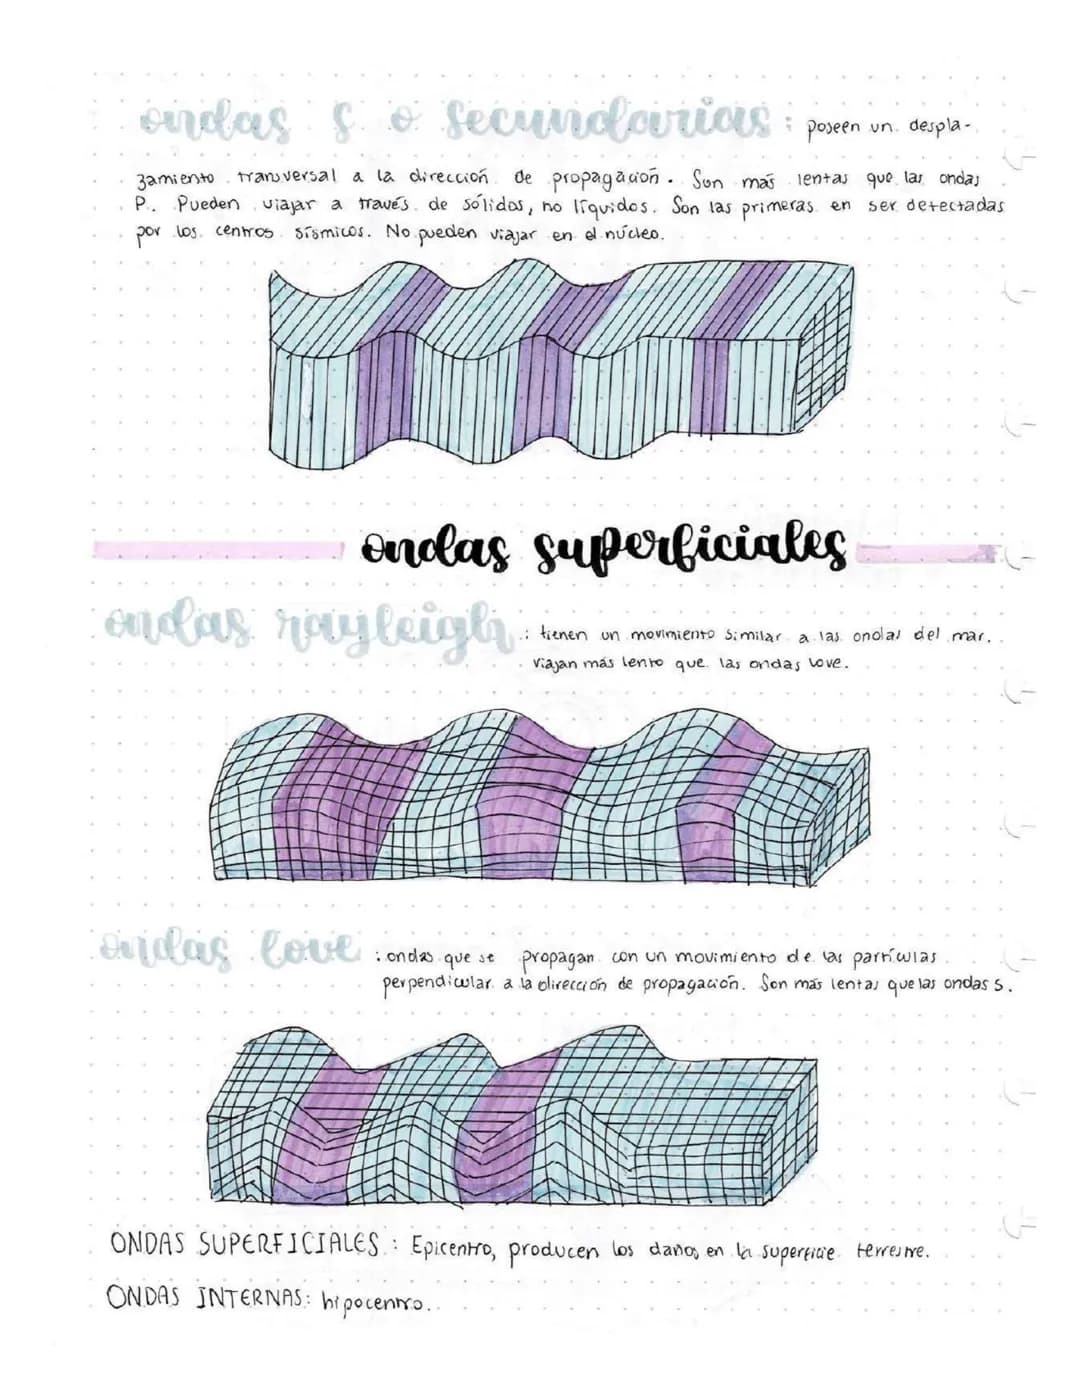 ondas s o secundarias: poseen un despla-
zamiento transversal a la dirección de propagación. Son más lentas que las ondas
P. Pueden viajar a través de sólidos, no líquidos. Son las primeras en ser detectadas
por los centros sísmicos. No pueden viajar en el núcleo.
ondas superficiales
ondas rayleigh: tienen un movimiento similar a las ondas del mar.
viajan más lento que las ondas love.
ondas love: ondas que se propagan con un movimiento de las partículas
perpendicular a la dirección de propagación. Son más lentas que las ondas s.
ONDAS SUPERFICIALES: Epicentro, producen los daños en la superficie terrestre.
ONDAS INTERNAS: hipocentro.